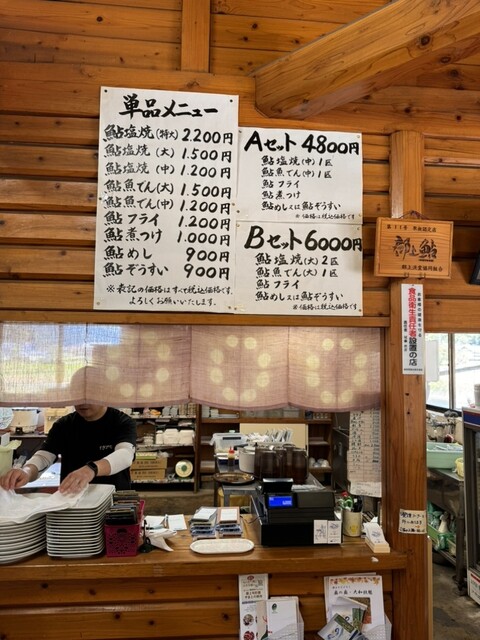 単品メニュー
鮎塩焼(特大) 2.200円
鮎塩焼(大) 1.500円
鮎塩焼(中) 1.200円
鮎魚でん(大) 1.500円
鮎魚でん(中) 1.200円
鮎フライ 1.200円
鮎煮つけ 1.000円
鮎めし 900円
鮎ぞうすい 900円
※表記の価格はすべて税込価格です。
よろしくお願いいたします。
Aセット 4800円
鮎塩焼(中)1匹
鮎魚でん(中)1匹
鮎フライ
鮎煮つけ
鮎めし又は鮎ぞうすい
※価格は税込価格です
Bセット 6000円
鮎塩焼(大)2匹
鮎魚でん(大)1匹
鮎フライ
鮎めし又は鮎ぞうすい
※価格は税込価格です
郡上鮎
郡上漁業協同組合
食品衛生責任者設置の店